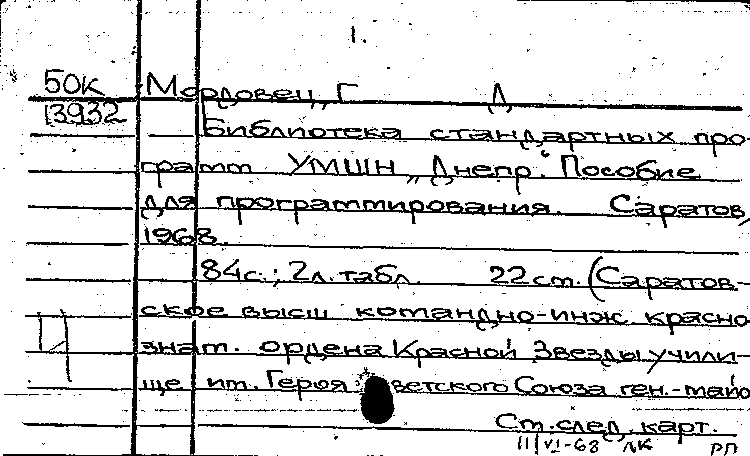 1.
50К Мордовец, Г Д
13932
Библиотека стандартных про-
грамм УМШН „Днепр". Пособие
для программирования. Саратов,
1968.
84с.; 2л. табл. 22 см. (Саратов-
ское высш командно-инж. красно
знам. ордена Красной Звезды учили-
ще им. Героя Советского Союза ген.-майо
См. след. карт.
11/VI-68 ЛК РП